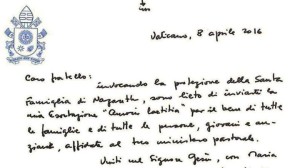 Vaticano, 8 aprile 2016
Caro fratello:
invocando la protezione della Santa
Famiglia di Nazareth, sono lieto di inviarti la
mia Esortazione "Amoris laetitia" per il bene di tutte
le famiglie e di tutte le persone, giovani e an-
ziane, affidate al tuo ministero pastorale.
Uniti nel Signore Gesù, con Maria